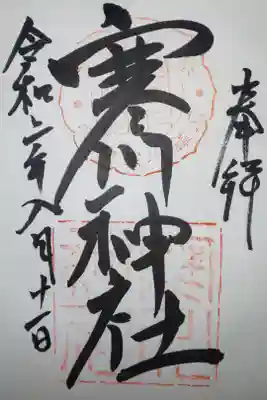 奉拝
寒川神社
令和二年八月十一日